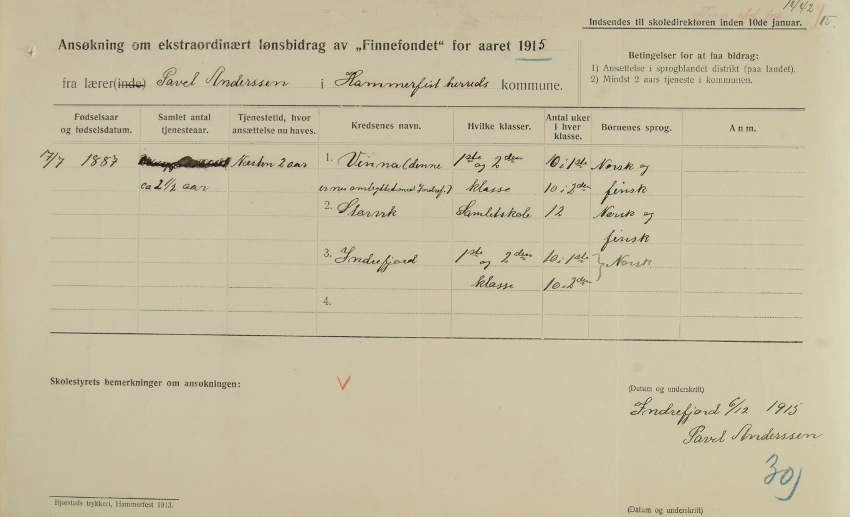 14/42
15.
Indsendes til skoledirektøren inden 10de januar.
Ansøkning om ekstraordinært lønsbidrag av „Finnefondet“ for aaret 1915
fra lærer(inde) Pavel Anderssen i Hammerfest herreds kommune.
Betingelser for at faa bidrag:
1) Ansættelse i sprogblandet distrikt (paa landet).
2) Mindst 2 aars tjeneste i kommunen.
Fødselsaar og fødselsdatum.
Samlet antal tjenesteaar.
Tjenestetid, hvor ansættelse nu haves.
Kredsenes navn.
Hvilke klasser.
Antal uker i hver klasse.
Børnenes sprog.
Anm.
7/7 1887
ca 2 1/2 aar
Næsten 2 aar
1. Vinna (denne
er nu ombyttet med Indref.)
1ste og 2den
klasse
10 i 1ste
10 i 2den
Norsk og
finsk
2. Storvik
Samletskole
12
Norsk og
finsk
3. Indrefjord
1ste og 2den
klasse
10 i 1ste
10 i 2den
Norsk
4.
Skolestyrets bemerkninger om ansøkningen:
V
(Datum og underskrift)
Indrefjord 6/12 1915
Pavel Anderssen
30)
Bjørstads trykkeri, Hammerfest 1913.
(Datum og underskrift)